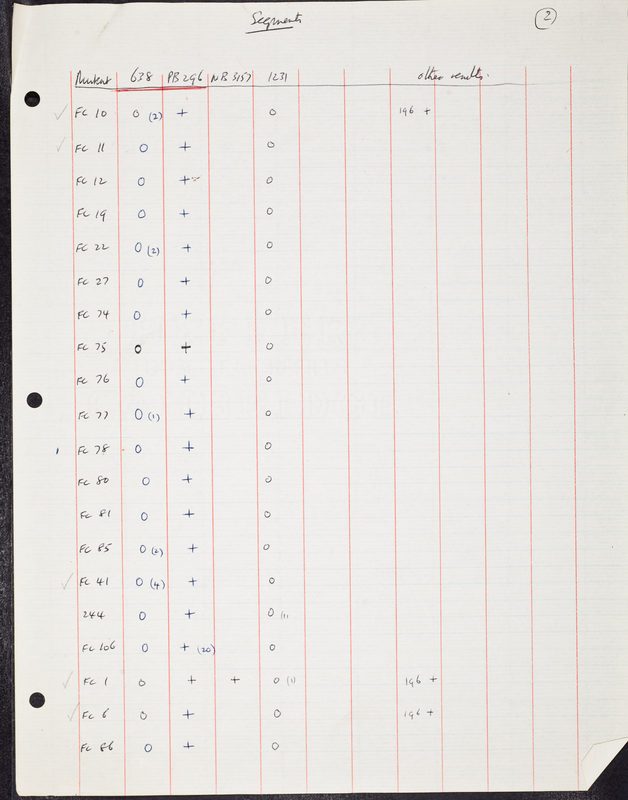 Segments 2
Mutant 638 PB 296 NB 5157 1231 other results.
✓ FC 10 0 (2) + 0 196 +
✓ FC 11 0 + 0
FC 12 0 + 0
FC 19 0 + 0
FC 22 0 (2) + 0
FC 27 0 + 0
FC 74 0 + 0
FC 75 0 + 0
FC 76 0 + 0
FC 77 0 (1) + 0
FC 78 0 + 0
FC 80 0 + 0
FC 81 0 + 0
FC 85 0 (2) + 0
✓ FC 41 0 (4) + 0
244 0 + 0 (1)
FC 106 0 + (20) 0
✓ FC 1 0 + + 0 (1) 196 +
✓ FC 6 0 + 0 196 +
FC 86 0 + 0